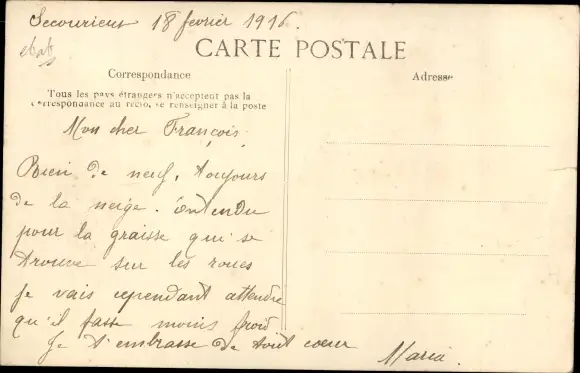 Secourieux 18 fevrier 1916.
CARTE POSTALE
Correspondance
Adresse
Tous les pays étrangers n'acceptent pas la
correspondance au recto, se renseigner à la poste
Mon cher François.
Rien de neuf, toujours
de la neige. Entendu
pour la graisse qui se
trouve sur les roues
je vais cependant attendre
qu'il fasse moins froid
Je t'embrasse de tout cœur
Maria.